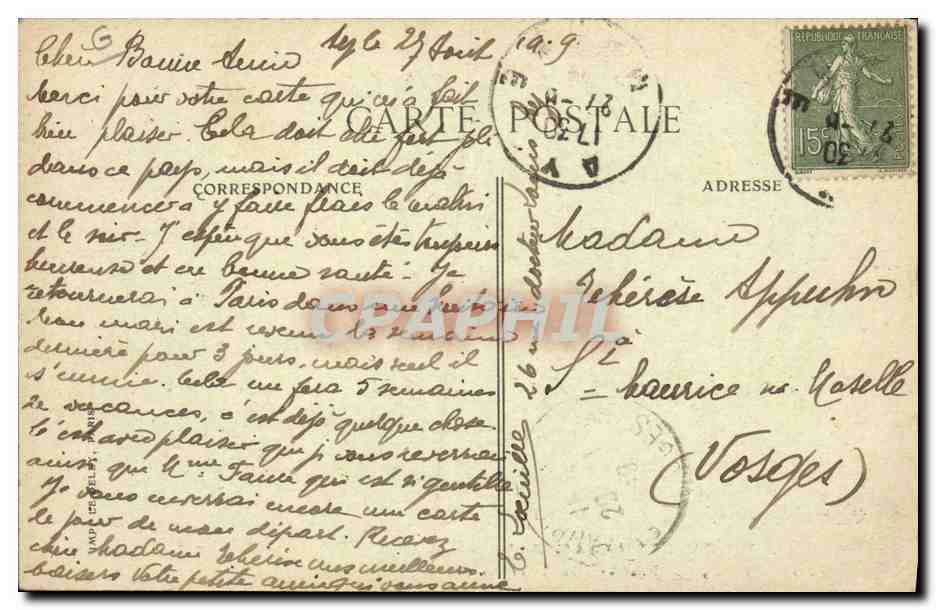 le 27 Août 1919
Chère Bonne Amie
Merci pour votre carte qui m'a fait
bien plaisir. Cela doit être fort joli
dans ce pays, mais il doit déjà
commencer à y faire frais le matin
et le soir. J'espère que vous êtes toujours
heureuse et en bonne santé. Je
retournerai à Paris dans une huitaine
Mon mari est revenu la semaine
dernière pour 3 jours, mais seul il
s'ennuie. Cela me fera 5 semaines
de vacances, c'est déjà quelque chose
C'est avec plaisir que je vous reverrai
ainsi que Mme qui est si gentille
Je vous enverrai encore une carte
le jour de mon départ. Recevez
chère Madame Thérèse mes meilleurs
baisers Votre petite amie qui vous aime
26 rue docteur
CARTE POSTALE
CORRESPONDANCE
ADRESSE
REPUBLIQUE FRANÇAISE
15c
AY
Madame
Thérèse Appuhn
à
St Maurice sr Moselle
(Vosges)
CPAPHIL